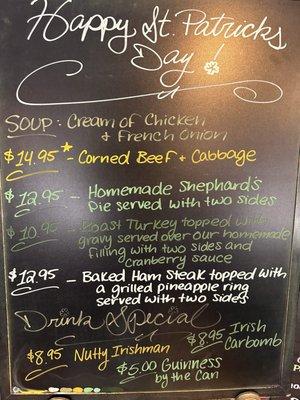 Happy St. Patricks
Day!
SOUP: Cream of Chicken
& French Onion
$14.95 - Corned Beef & Cabbage
$12.95 - Homemade Shephard's
Pie served with two sides
$10.95 - Roast Turkey topped with
gravy served over our homemade
filling with two sides and
cranberry sauce
$12.95 - Baked Ham Steak topped with
a grilled pineapple ring
served with two sides
Drink Special
$8.95 Nutty Irishman
$8.95 Irish
Carbomb
$5.00 Guinness
by the Can